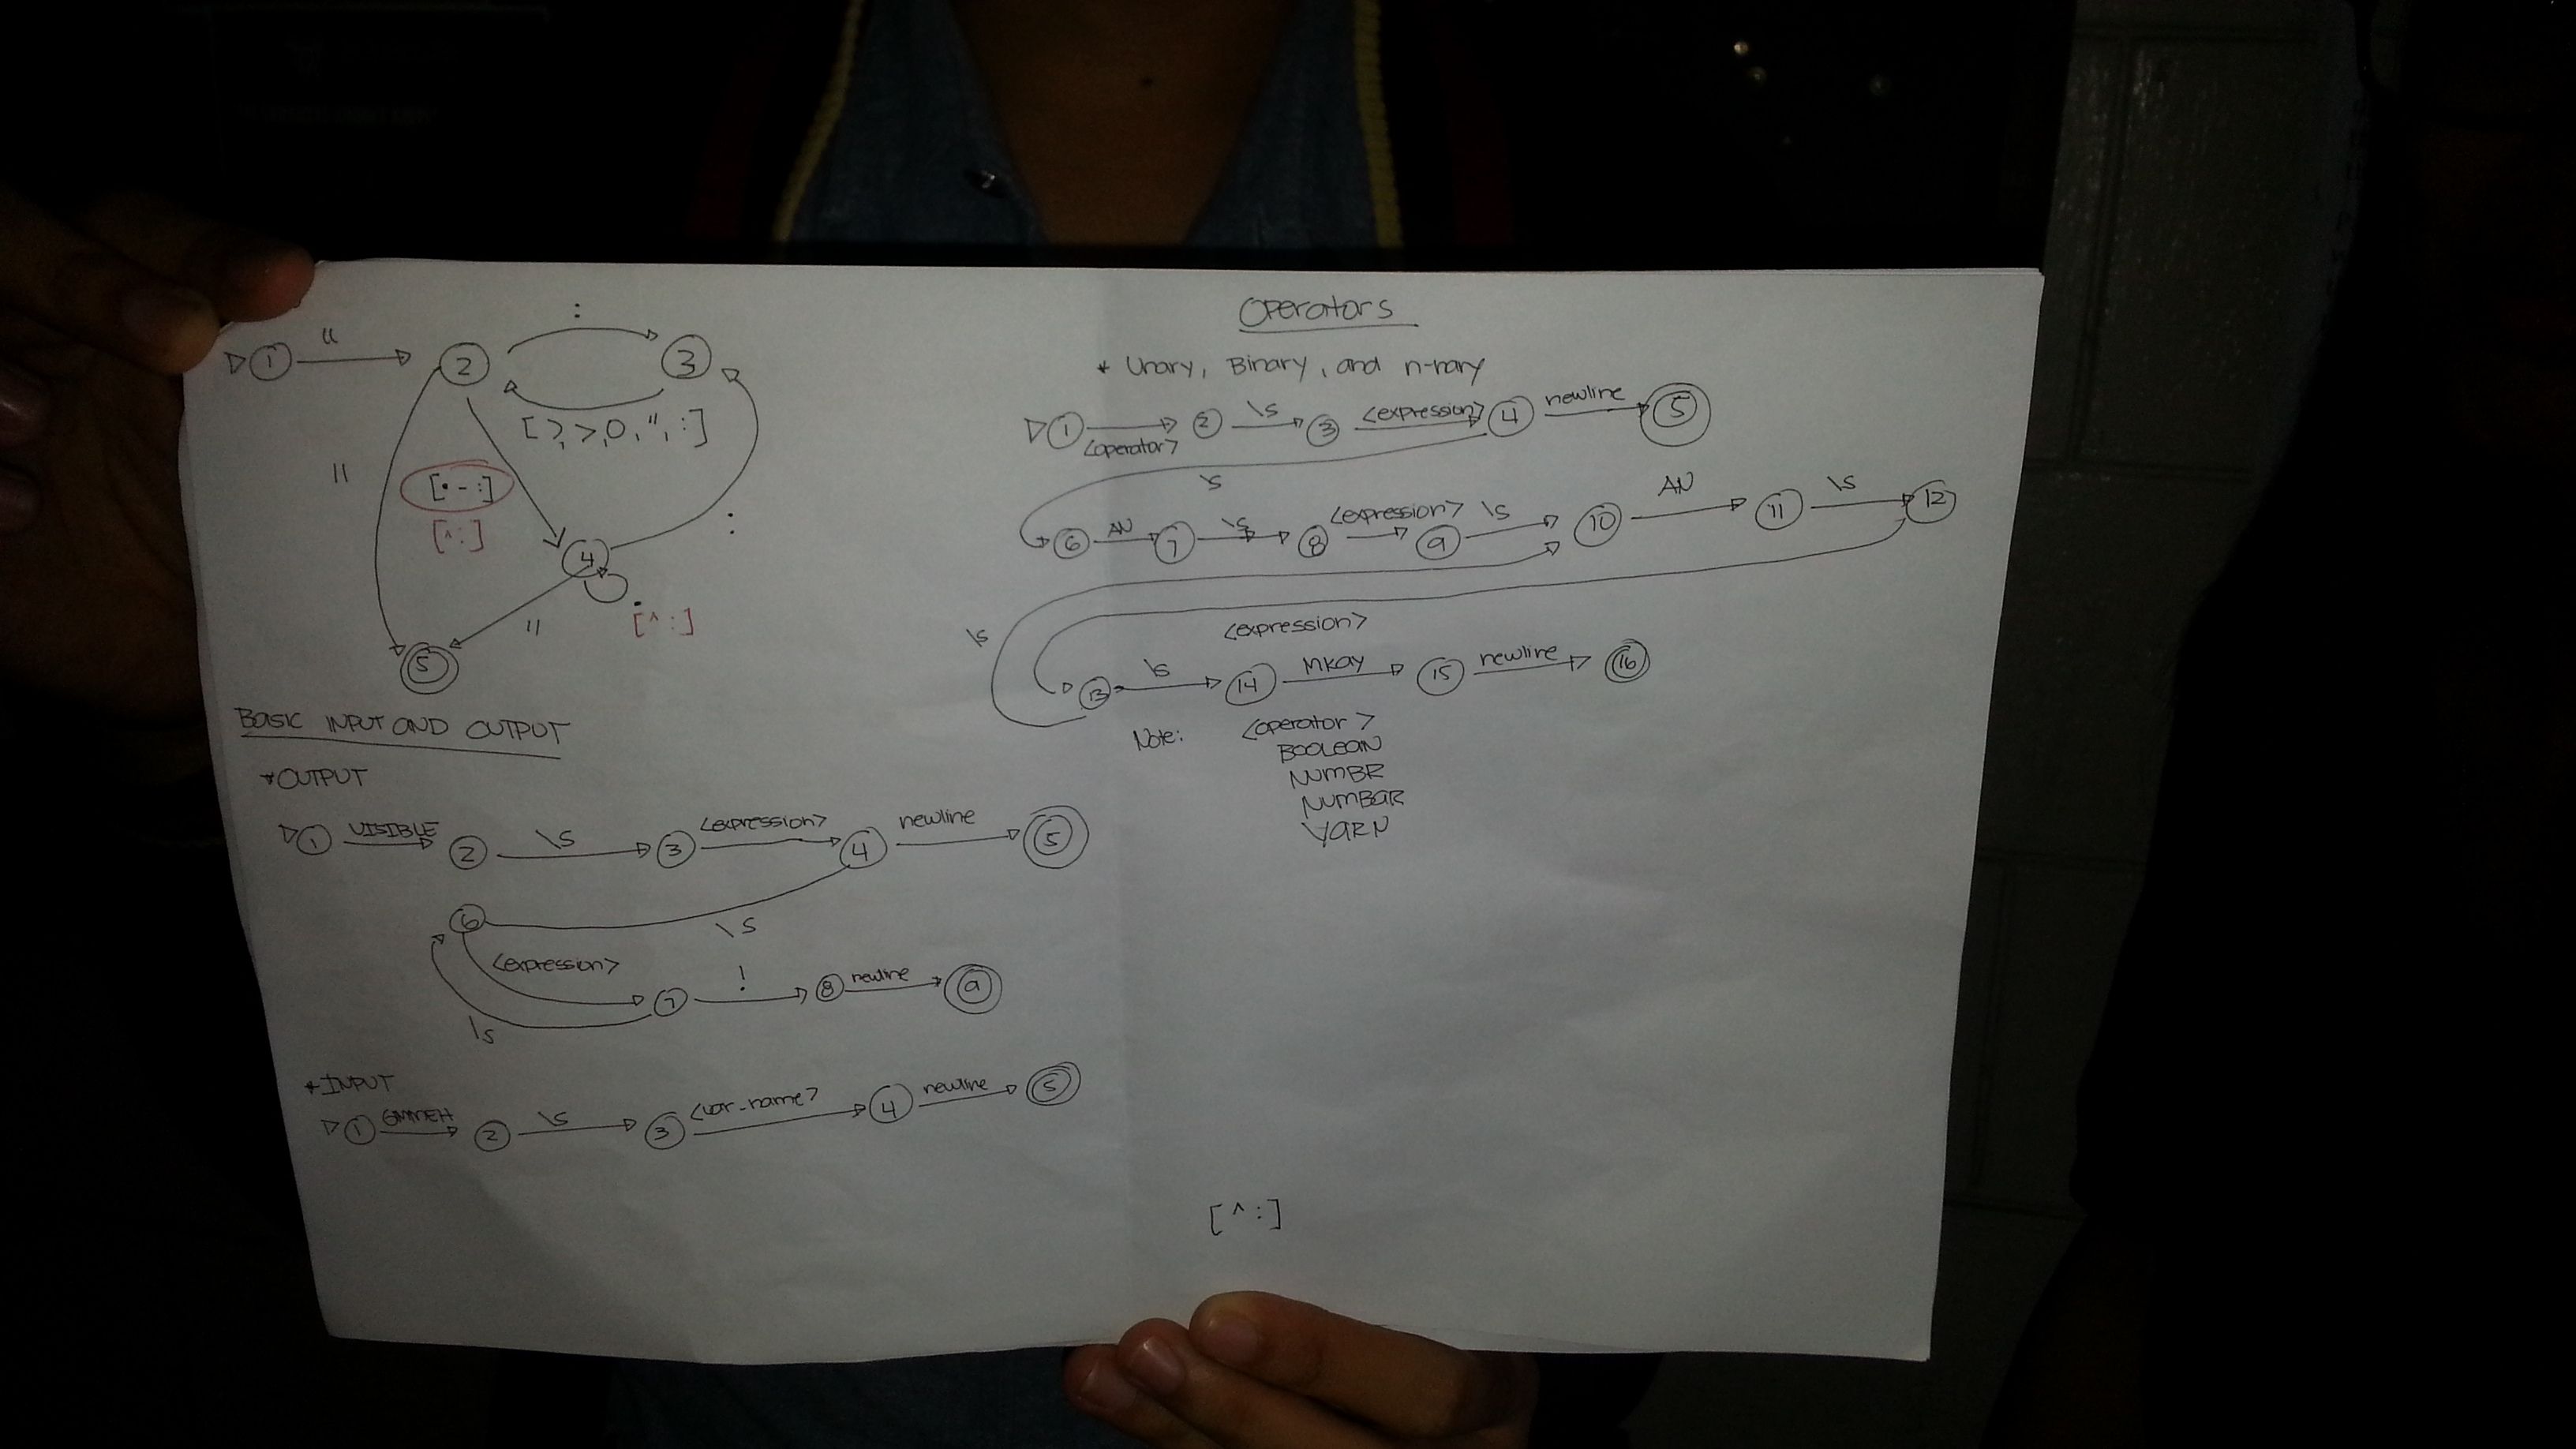 :
“
1
2
3
[ ), >, o, ", : ]
"
[• - :]
[^:]
:
4
"
[^:]
5
BASIC INPUT AND OUTPUT
*OUTPUT
1 VISIBLE 2 \s 3 <expression> 4 newline 5
6 \s
<expression> 7 ! 8 newline 9
\s
*INPUT
1 GIMMEH 2 \s 3 <var_name> 4 newline 5
Operators
* Unary, Binary, and n-nary
1 <operator> 2 \s 3 <expression> 4 newline 5
\s
6 AN 7 \s 8 <expression> 9 \s 10 AN 11 \s 12
\s <expression>
13 \s 14 MKAY 15 newline 16
Note: <operator>
BOOLEAN
NUMBR
NUMBAR
YARN
[^:]